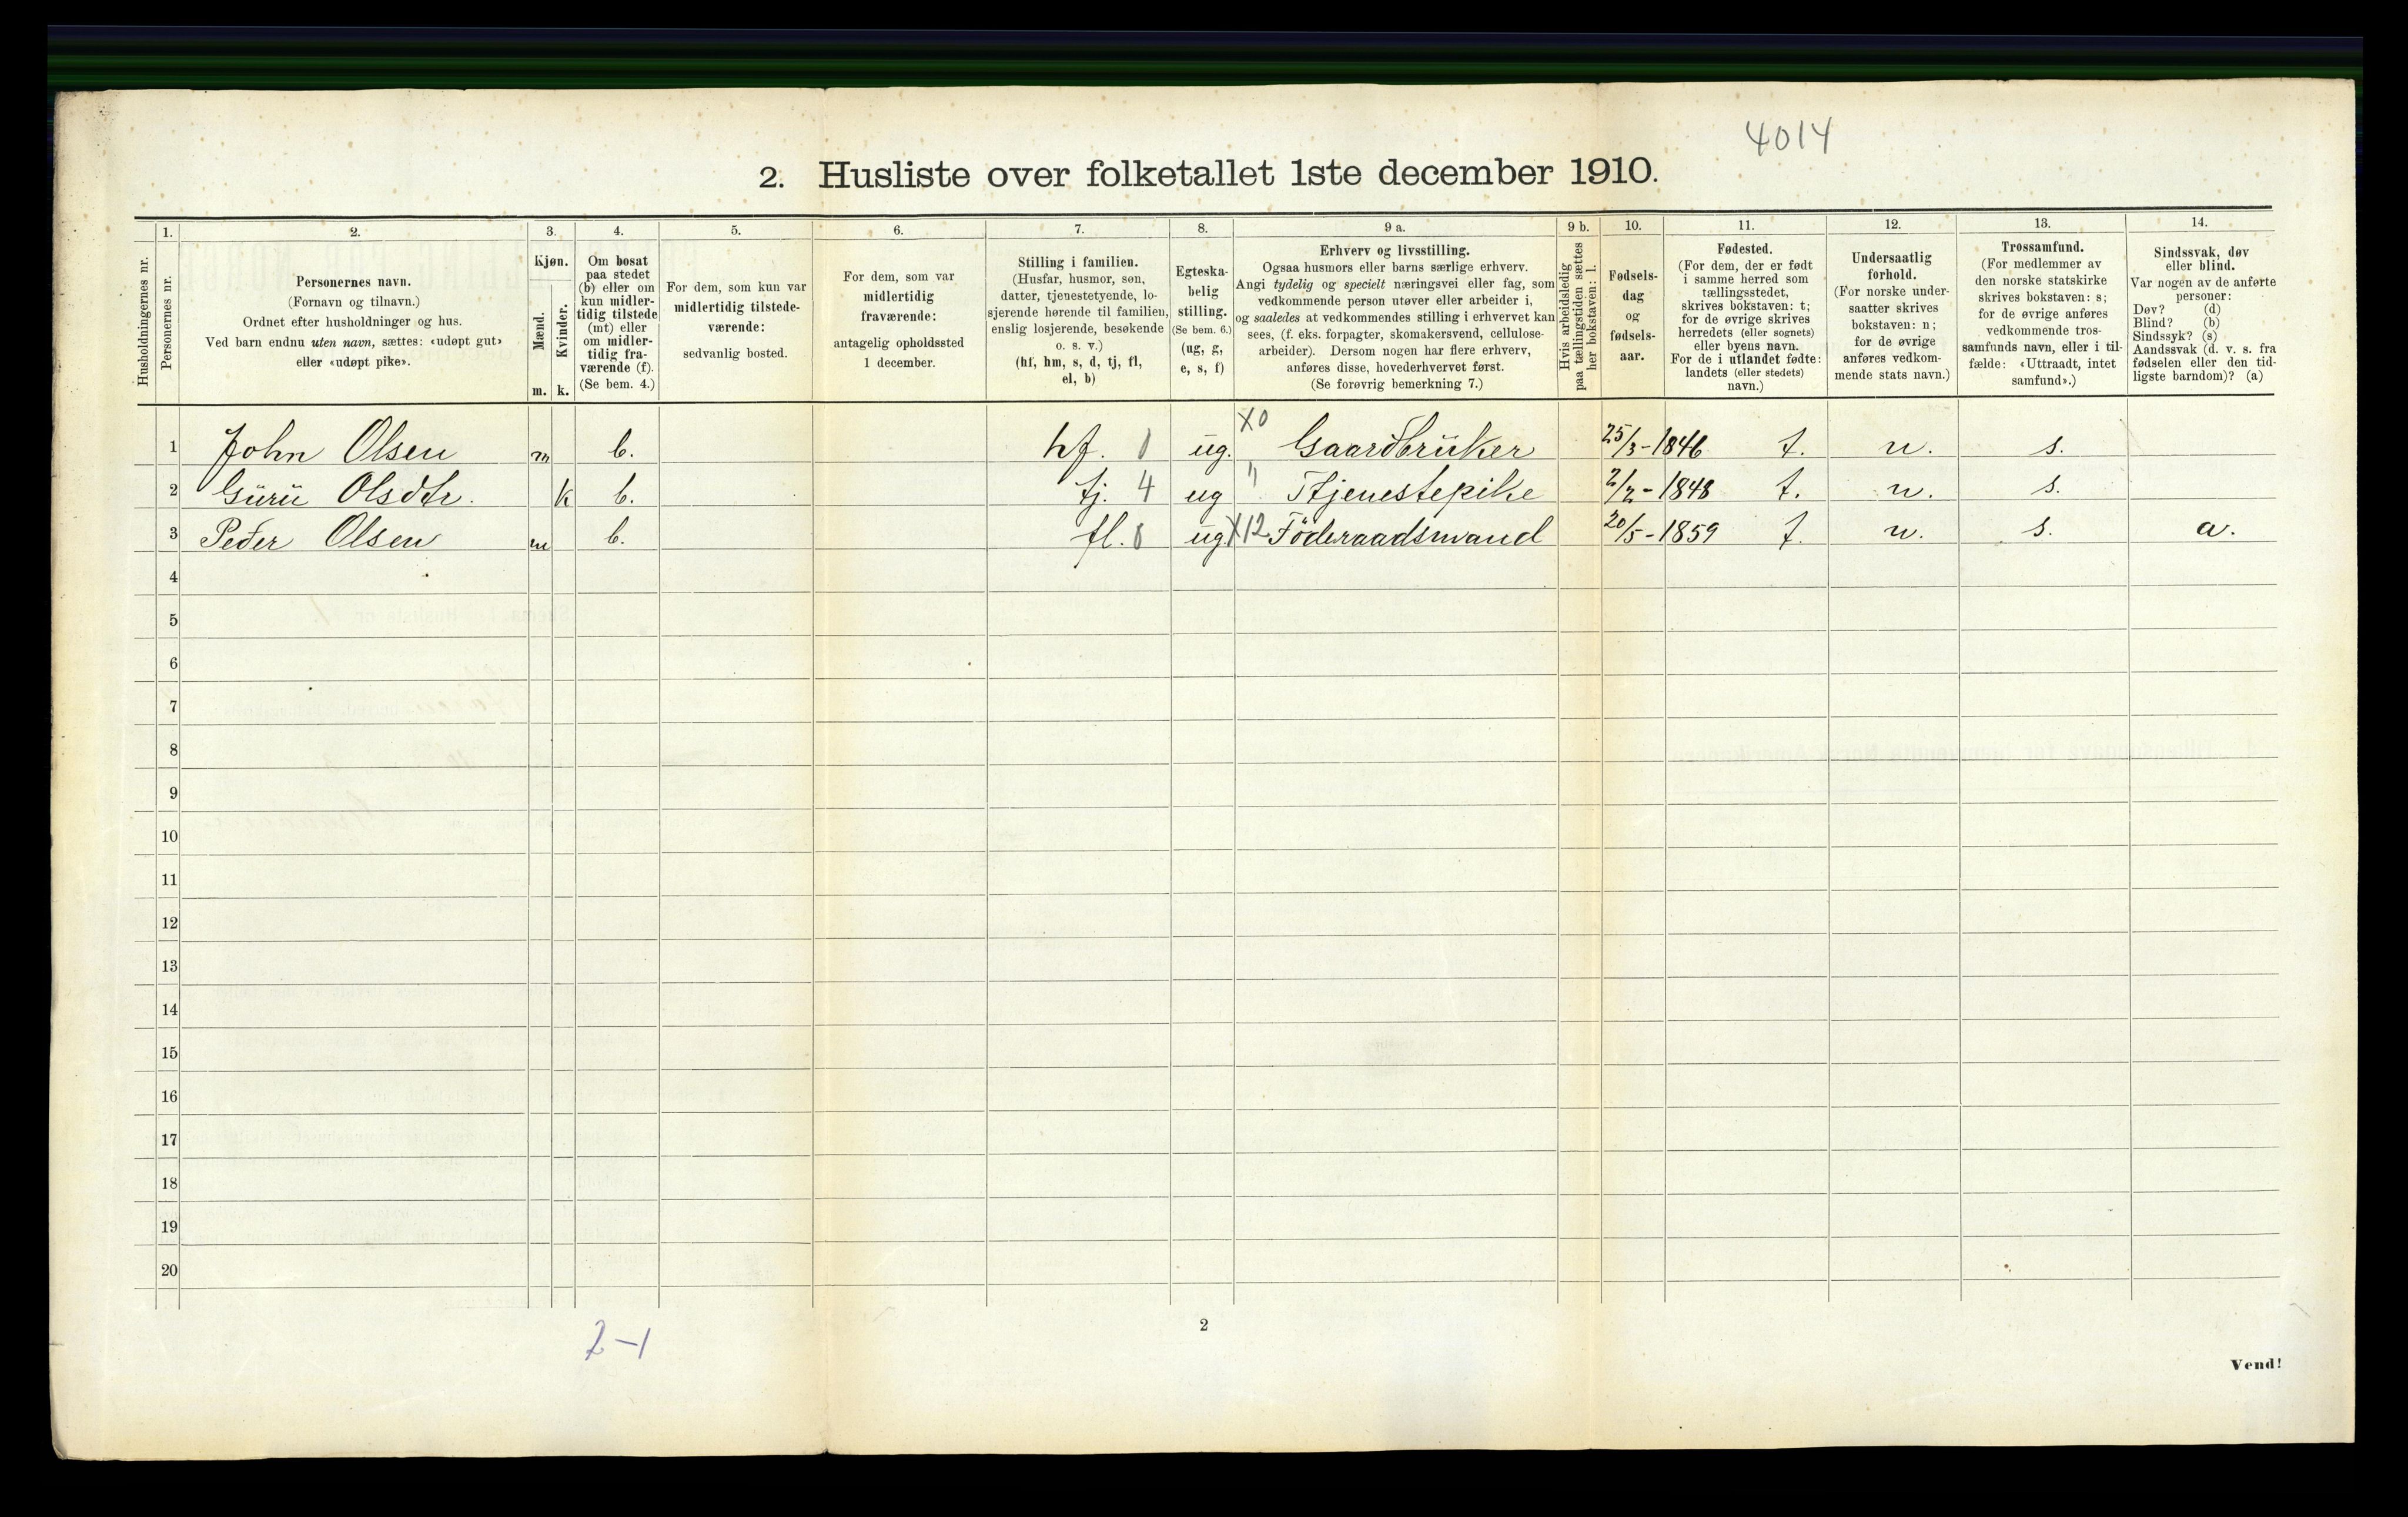 4014
2. Husliste over folketallet 1ste december 1910.
Husholdningernes nr.
1. Personernes nr.
2. Personernes navn.
(Fornavn og tilnavn.)
Ordnet efter husholdninger og hus.
Ved barn endnu uten navn, sættes: «udøpt gut»
eller «udøpt pike».
3. Kjøn.
Mænd. m.
Kvinder. k.
4. Om bosat
paa stedet
(b) eller om
kun midler-
tidig tilstede
(mt) eller
om midler-
tidig fra-
værende (f).
(Se bem. 4.)
5. For dem, som kun var
midlertidig tilstede-
værende:
sedvanlig bosted.
6. For dem, som var
midlertidig
fraværende:
antagelig opholdssted
1 december.
7. Stilling i familien.
(Husfar, husmor, søn,
datter, tjenestetyende, lo-
sjerende hørende til familien,
enslig losjerende, besøkende
o. s. v.)
(hf, hm, s, d, tj, fl,
el, b)
8. Egteska-
belig
stilling.
(Se bem. 6.)
(ug, g,
e, s, f)
9 a. Erhverv og livsstilling.
Ogsaa husmors eller barns særlige erhverv.
Angi tydelig og specielt næringsvei eller fag, som
vedkommende person utøver eller arbeider i,
og saaledes at vedkommendes stilling i erhvervet kan
sees, (f. eks. forpagter, skomakersvend, cellulose-
arbeider). Dersom nogen har flere erhverv,
anføres disse, hovederhvervet først.
(Se forøvrig bemerkning 7.)
9 b. Hvis arbeidsledig
paa tællingstiden sættes
her bokstaven: l.
10. Fødsels-
dag
og
fødsels-
aar.
11. Fødested.
(For dem, der er født
i samme herred som
tællingsstedet,
skrives bokstaven: t;
for de øvrige skrives
herredets (eller sognets)
eller byens navn.
For de i utlandet fødte:
landets (eller stedets)
navn.)
12. Undersaatlig
forhold.
(For norske under-
saatter skrives
bokstaven: n;
for de øvrige
anføres vedkom-
mende stats navn.)
13. Trossamfund.
(For medlemmer av
den norske statskirke
skrives bokstaven: s;
for de øvrige anføres
vedkommende tros-
samfunds navn, eller i til-
fælde: «Uttraadt, intet
samfund».)
14. Sindssvak, døv
eller blind.
Var nogen av de anførte
personer:
Døv? (d)
Blind? (b)
Sindssyk? (s)
Aandssvak (d. v. s. fra
fødselen eller den tid-
ligste barndom)? (a)
1 John Olsen m b. hf. 0 ug. X0 Gaardbruker 25/3-1846 t. n. s.
2 Guru Olsdtr. k b. tj. 4 ug " Tjenestepike 2/2-1848 t. n. s.
3 Peder Olsen m b. fl. 0 ug. X12 Föderaadsmand 20/5-1859 t. n. s. a.
4
5
6
7
8
9
10
11
12
13
14
15
16
17
18
19
20
2-1
2
Vend!